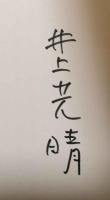 井上光晴